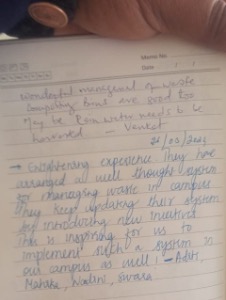 Memo No.
Date / /
Wonderful management of waste
bins are good too
May be Rain water needs to be
harvested - Venkat
→ Enlightening experience they have
arranged a well thought system
for managing waste in campus
they keep updating their system
by introducing new
This is inspiring for us to
implement such a system in
our campus as well! - Aditi,
Nalini, Swara